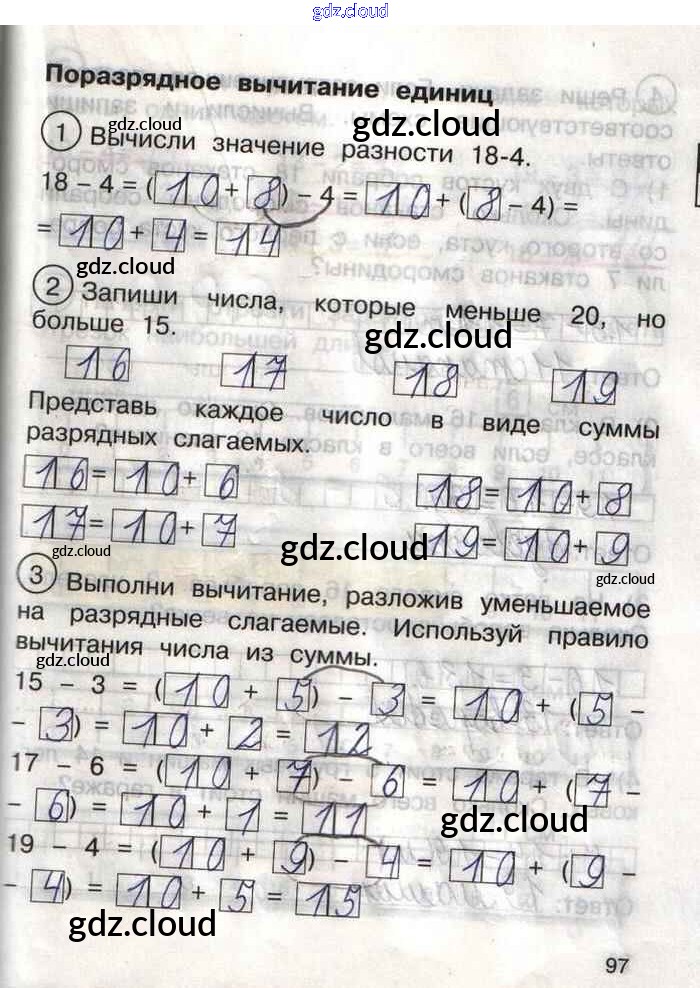 gdz.cloud
Поразрядное вычитание единиц
gdz.cloud
gdz.cloud
1 Вычисли значение разности 18-4.
18 – 4 = (10 + 8) – 4 = 10 + (8 – 4) =
= 10 + 4 = 14
gdz.cloud
2 Запиши числа, которые меньше 20, но
больше 15.
gdz.cloud
16 17 18 19
Представь каждое число в виде суммы
разрядных слагаемых.
16 = 10 + 6 18 = 10 + 8
17 = 10 + 7 19 = 10 + 9
gdz.cloud
gdz.cloud
gdz.cloud
3 Выполни вычитание, разложив уменьшаемое
на разрядные слагаемые. Используй правило
вычитания числа из суммы.
gdz.cloud
15 – 3 = (10 + 5) – 3 = 10 + (5 –
– 3) = 10 + 2 = 12
17 – 6 = (10 + 7) – 6 = 10 + (7 –
– 6) = 10 + 1 = 11
gdz.cloud
19 – 4 = (10 + 9) – 4 = 10 + (9 –
– 4) = 10 + 5 = 15
gdz.cloud
97